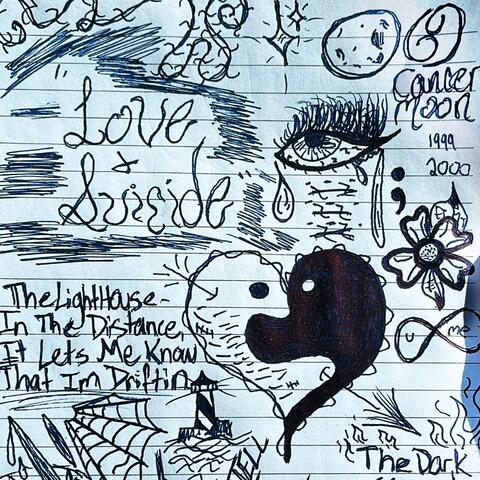 Love
&
Suicide
Cancer
Moon
1999
2000
;
The LightHouse-
In The Distance,
It Lets Me Know
That Im Driftin
u
me
The Dark